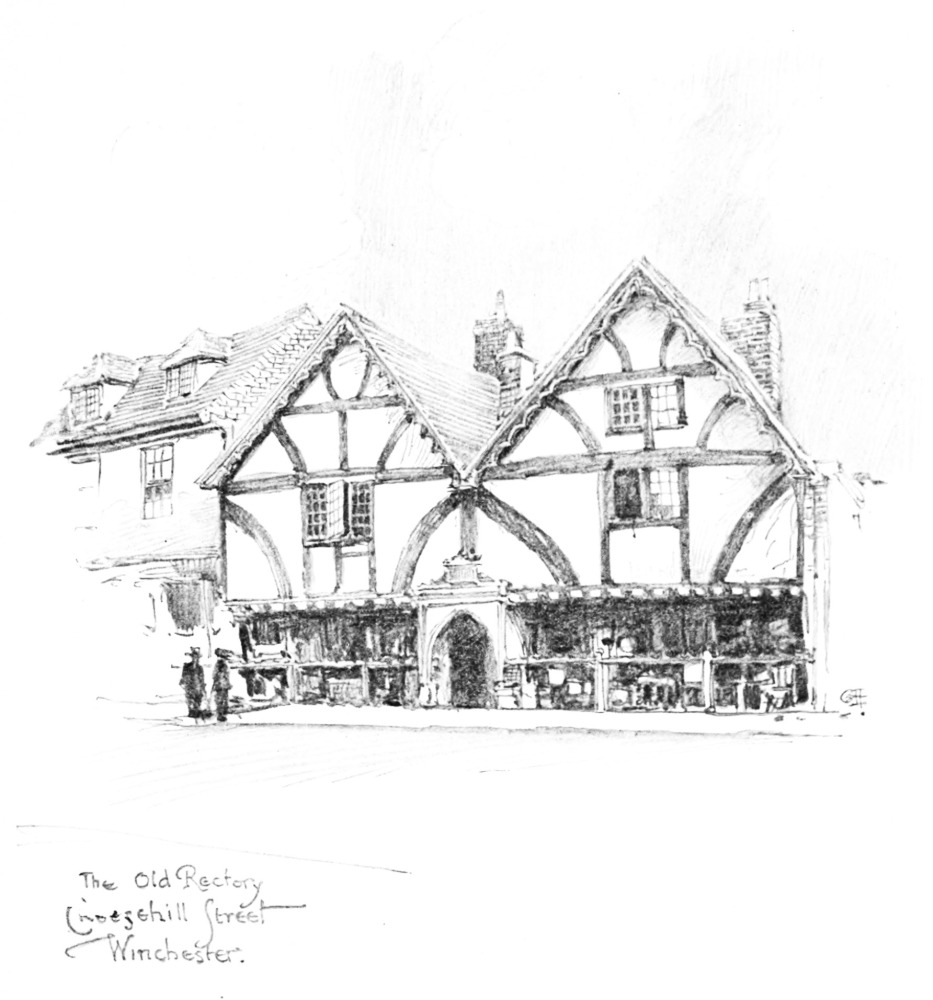 The Old Rectory
Cheesehill Street
Winchester.